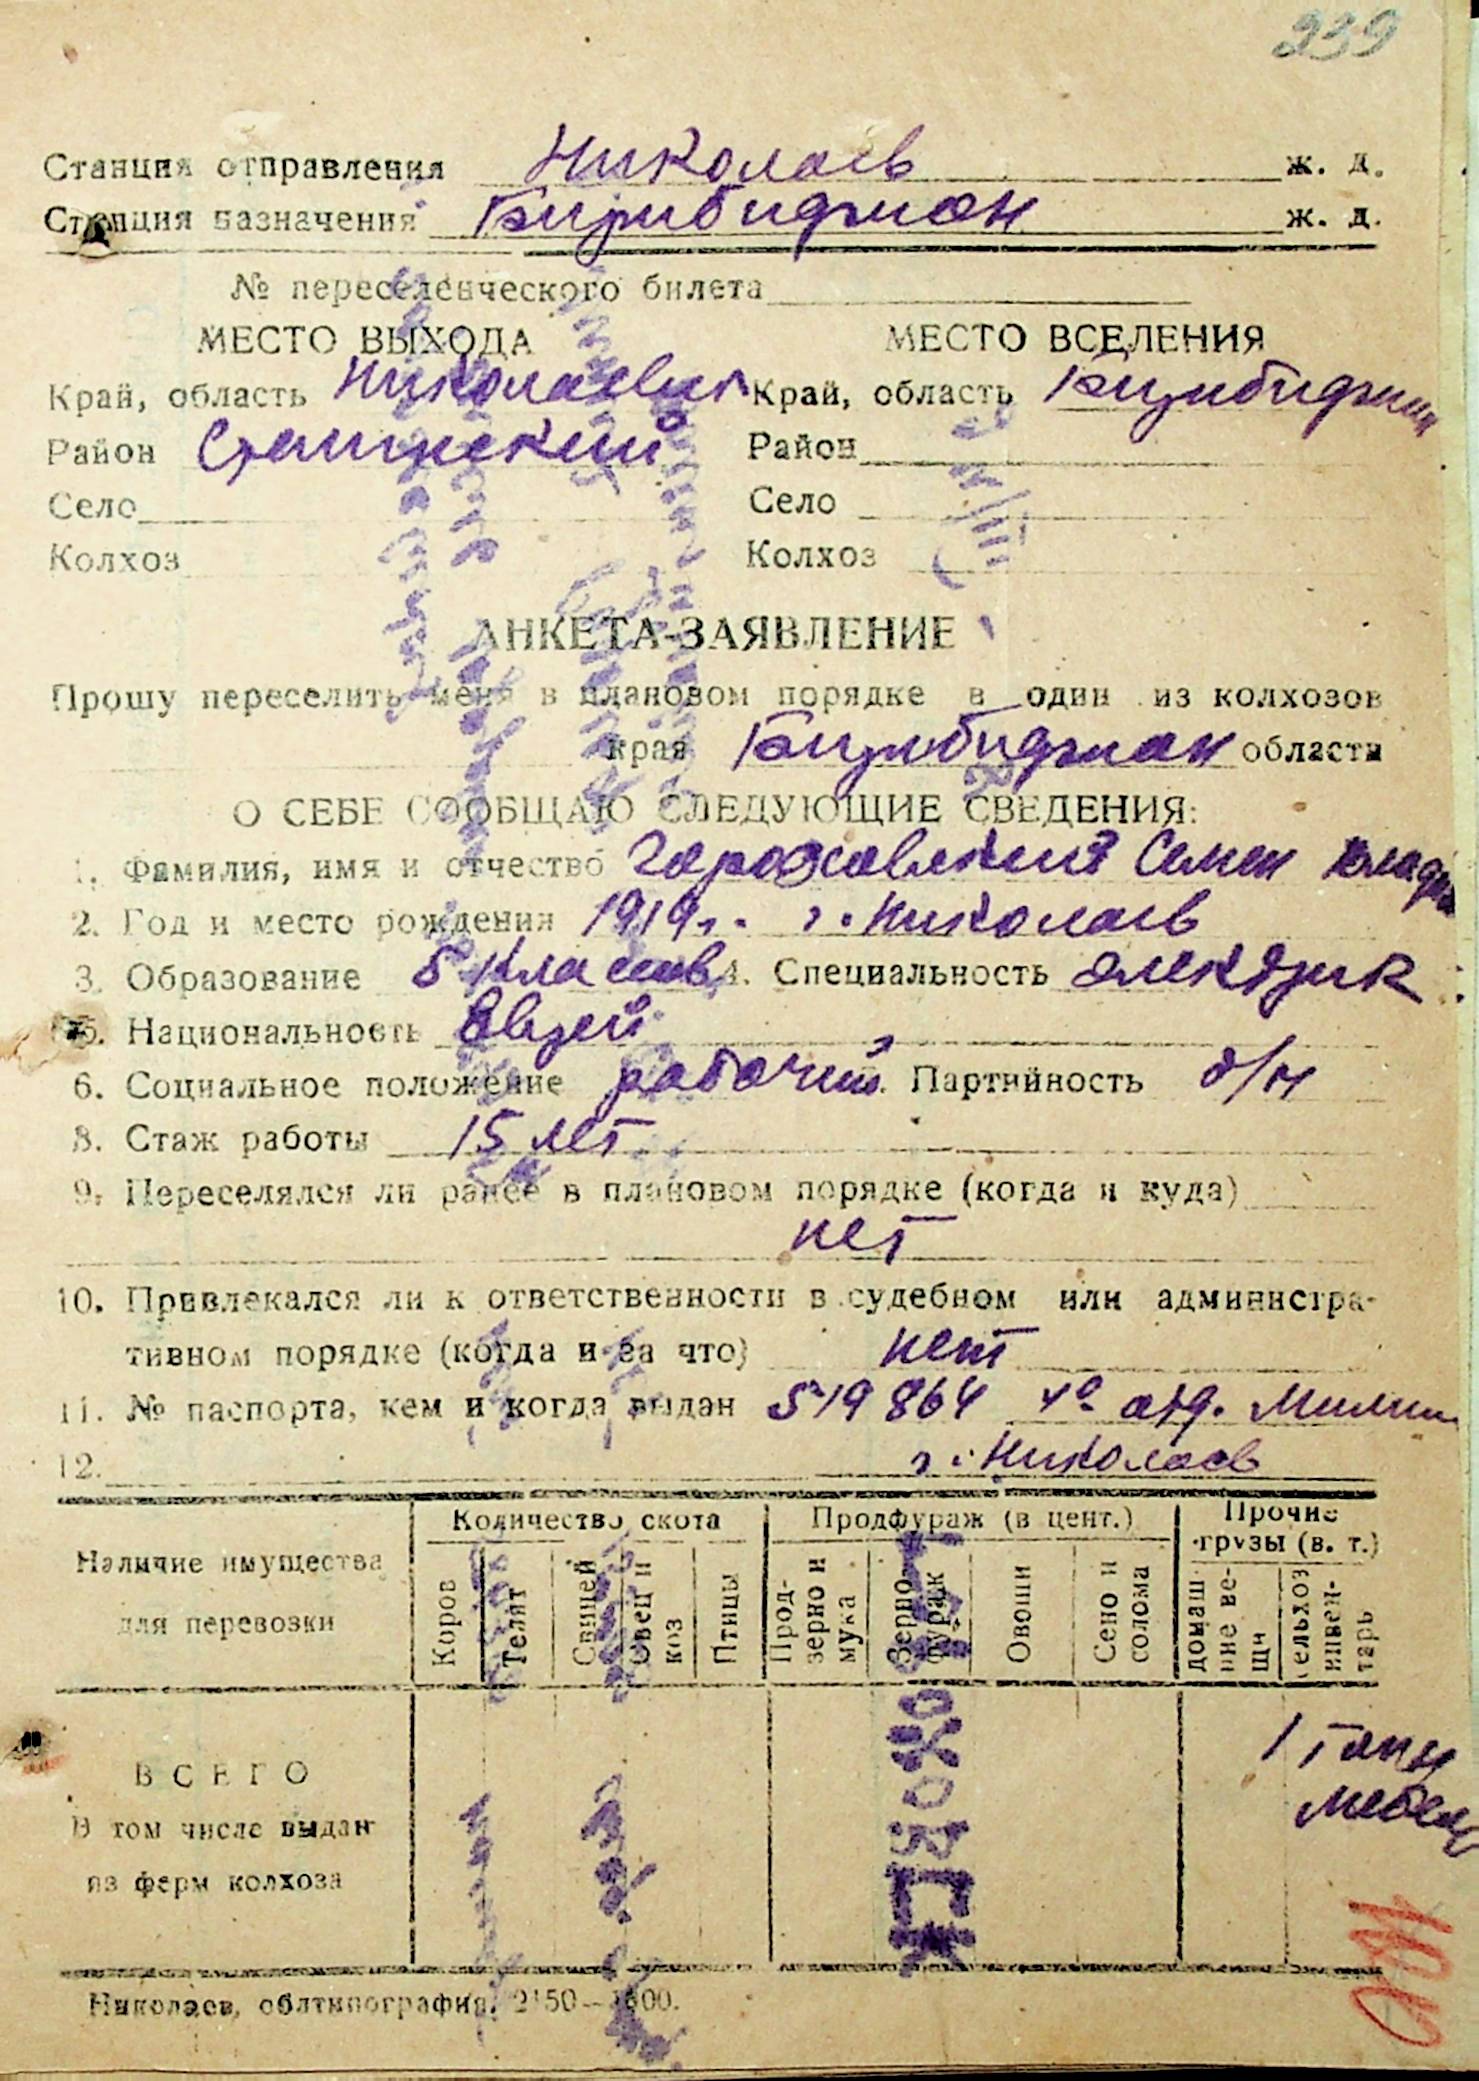 239
Станция отправления Николаев ж. д.
Станция назначения Биробиджан ж. д.
№ переселенческого билета
МЕСТО ВЫХОДА МЕСТО ВСЕЛЕНИЯ
Край, область Николаевская Край, область Биробиджан
Район Сталинский Район
Село Село
Колхоз Колхоз
АНКЕТА-ЗАЯВЛЕНИЕ
Прошу переселить меня в плановом порядке в один из колхозов
края Биробиджан области
О СЕБЕ СООБЩАЮ СЛЕДУЮЩИЕ СВЕДЕНИЯ:
1. Фамилия, имя и отчество Семен
2. Год и место рождения 1919 г. г. Николаев
3. Образование 5 классов 4. Специальность электрик
5. Национальность Еврей
6. Социальное положение рабочий. Партийность б/п
8. Стаж работы 15 лет
9. Переселялся ли ранее в плановом порядке (когда и куда)
нет
10. Привлекался ли к ответственности в судебном или администра-
тивном порядке (когда и за что) нет
11. № паспорта, кем и когда выдан 519864 отд. Милиции
12. г. Николаев
Наличие имущества для перевозки
Количество скота
Коров
Телят
Свиней
Овец и коз
Птицы
Продфураж (в цент.)
Прод-зерно и мука
Зерно-фураж
Овощи
Сено и солома
Прочие грузы (в. т.)
домаш-ние ве-щи
сельхоз инвен-тарь
ВСЕГО
В том числе выдан
из ферм колхоза
1 тонн
мебель
Николаев, облтипография. 2150—